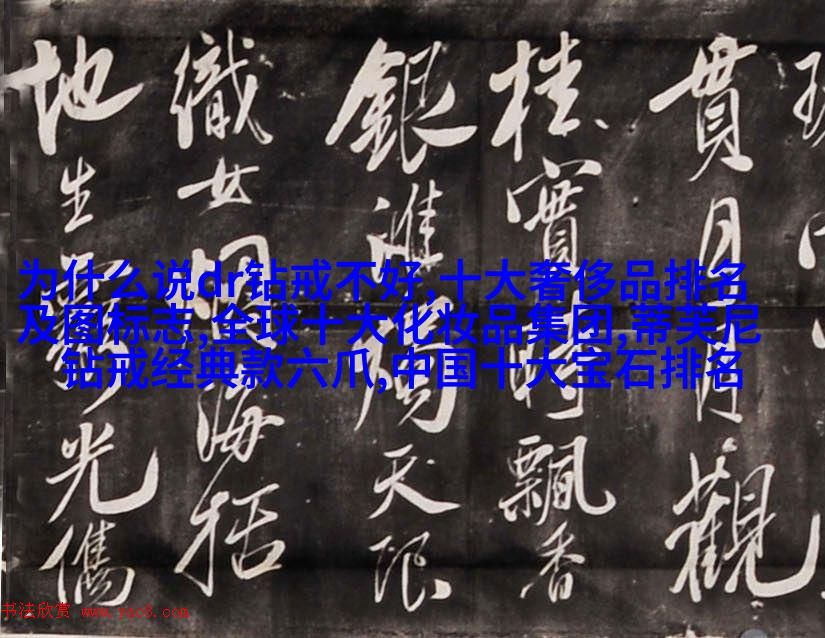 为什么说dr钻戒不好,十大奢侈品排名
及图标志,全球十大化妆品集团,蒂芙尼
钻戒经典款六爪,中国十大宝石排名
貫月月觀
桂實時飄香
銀淮天
織女海括
地生光儁
书法欣赏 www.yac8.com